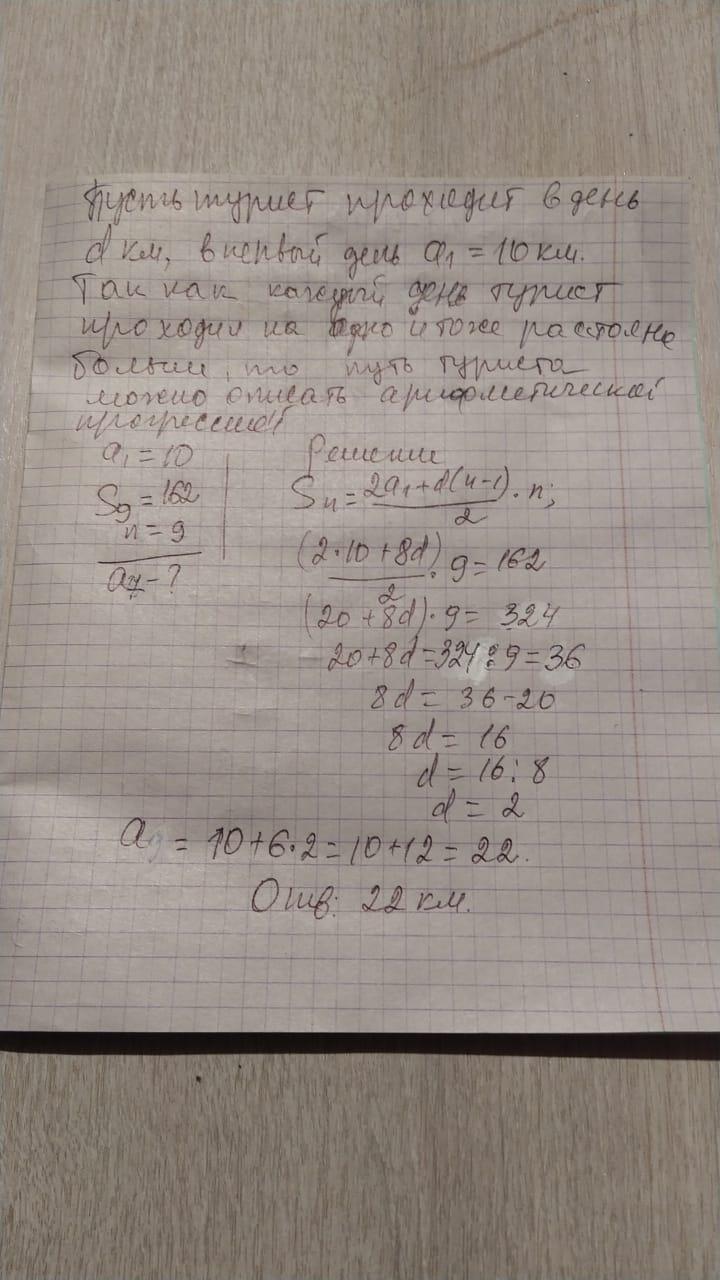 Пусть турист проходит в день
d км, в первый день a₁ = 10 км.
Так как каждый день турист
проходил на одно и тоже растояне
больше, то путь туриста
можно описать арифметической
прогрессией
a₁ = 10
S₉ = 162
n = 9
a - ?
Решение
Sₙ = (2a₁ + d(n-1))/2 · n;
(2·10 + 8d)/2 · 9 = 162
(20 + 8d) · 9 = 324
20 + 8d = 324 : 9 = 36
8d = 36 - 20
8d = 16
d = 16 : 8
d = 2
a = 10 + 6·2 = 10 + 12 = 22.
Отв: 22 км.